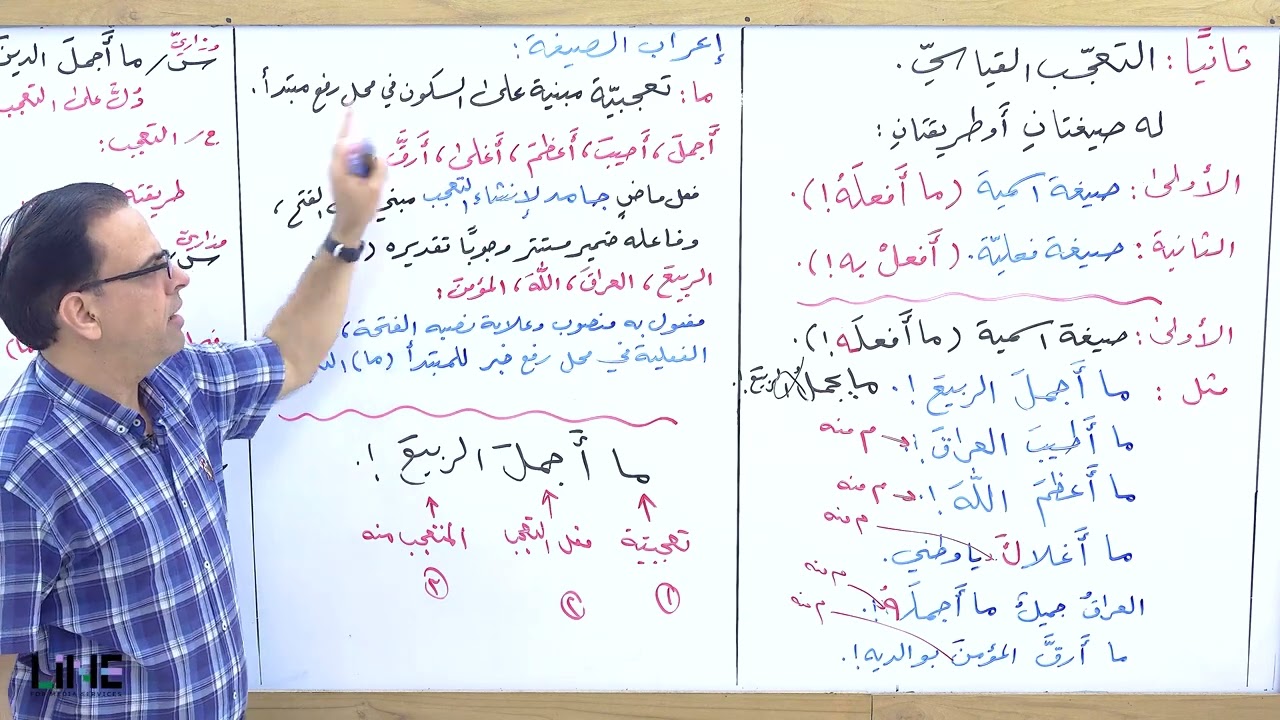 ثانيًا: التعجّب القياسيّ.
له صيغتانِ أو طريقتانِ:
الأولى: صيغة اسمية (ما أَفعلَهُ!).
الثانية: صيغة فعليّة. (أَفعلْ به!).
الأولى: صيغة اسمية (ما أَفعلَه!).
مثل: ما أَجملَ الربيعَ!. ما يجمل الربيعَ!.
ما أَطيبَ العراقَ! م منه
ما أَعظمَ اللهَ!. م منه
ما أَغلاكَ يا وطني. م منه
العراقُ جميلٌ ما أَجملَهُ!. م منه
ما أَرقَّ المؤمنَ بوالديه!. م منه
إعراب الصيغة:
ما: تعجبيّة مبنية على السكون في محل رفع مبتدأ.
أَجملَ، أَطيبَ، أَعظمَ، أَغلى، أَرقَّ
فعل ماضٍ جامد لإنشاء التعجب مبني الفتح،
وفاعله ضمير مستتر وجوبًا تقديره (
الربيعَ، العراقَ، اللهَ، المؤمنَ:
مفعول به منصوب وعلامة نصبه الفتحة،
الفعلية في محل رفع خبر للمبتدأ (ما)
ما أَجملَ الربيعَ!.
تعجبيّة فعل التعجب المتعجب منه
١ ٢ ٣
وزاريّ
س/ ما أَجملَ
دُلَّ على التعجب
ج/ التعجب:
طريقته
وزاريّ
س/
LINE
FOR MEDIA SERVICES